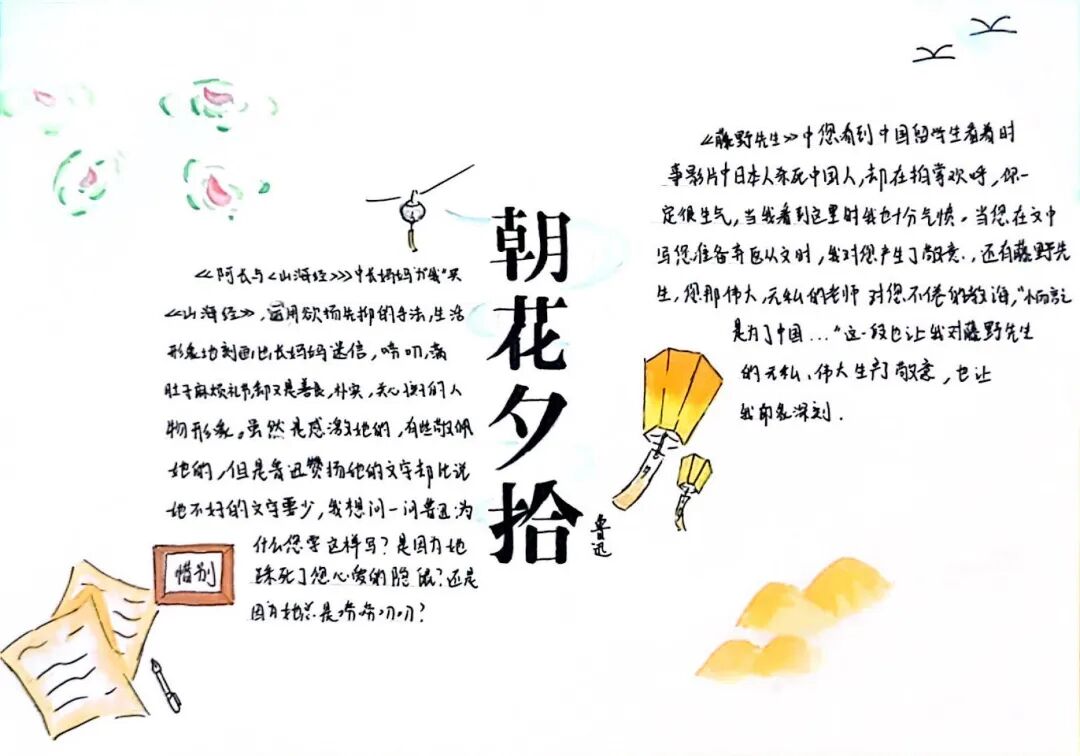 朝花夕拾
鲁迅
《阿长与《山海经》》中长妈妈为"我"买
《山海经》,运用欲扬先抑的手法,生活
形象地刻画出长妈妈迷信,唠叨,满
肚子麻烦礼节却又是善良,朴实,关心孩子的人
物形象。虽然是感激她的,有些敬佩
她的,但是鲁迅赞扬他的文字却比说
她不好的文字要少,我想问一问鲁迅为
什么您要这样写?是因为她
踩死了您心爱的隐鼠?还是
因为她总是唠唠叨叨?
惜别
《藤野先生》中您看到中国留学生看着时
事影片中日本人杀死中国人,却在拍掌欢呼,你一
定很生气,当我看到这里时我也十分气愤。当您在文中
写您准备弃医从文时,我对您产生了敬意,还有藤野先
生,您那伟大,无私的老师对您不倦的教诲,"小而言之
是为了中国..."这一段也让我对藤野先生
的无私、伟大生产了敬意,也让
我印象深刻.